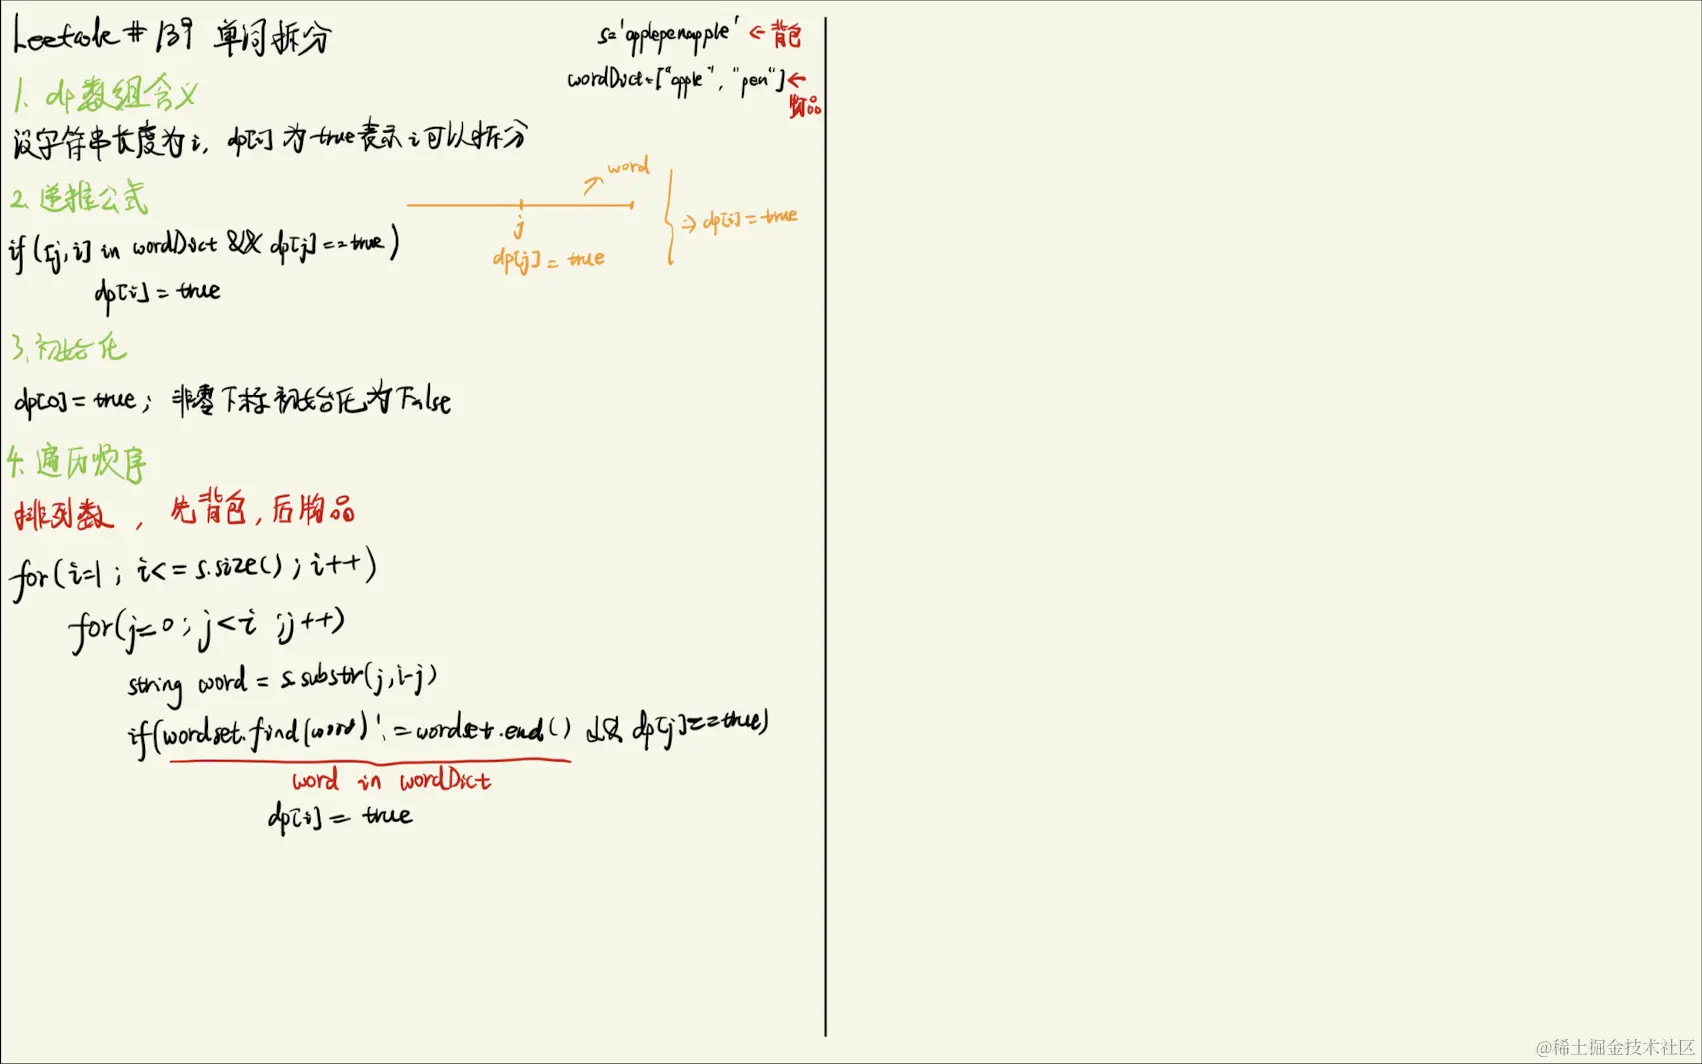 Leetcode # 139 单词拆分
s='applepenapple' ← 背包
wordDict=["apple", "pen"] ←
物品
1. dp数组含义
设字符串长度为i, dp[i]为true表示i可以拆分
2. 递推公式
word
j
dp[j] = true
⇒ dp[i] = true
if ([j, i] in wordDict && dp[j]==true)
dp[i] = true
3. 初始化
dp[0] = true; 非零下标初始化为False
4. 遍历顺序
排列数, 先背包, 后物品
for(i=1; i<= s.size(); i++)
for(j=0; j<i ;j++)
string word = s.substr(j, i-j)
if(wordset.find(word) != wordset.end() && dp[j]==true)
word in wordDict
dp[i] = true
@稀土掘金技术社区